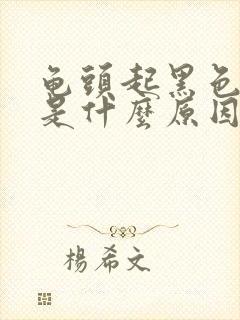 龟頭起黑色
是什麼原因
楊希文